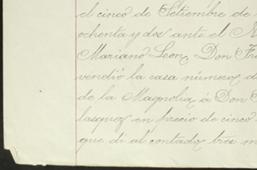 el cinco de Setiembre de
ochenta y dos ante el N
Mariano Leon, Don Fr
vendió la casa número d
de la Magnolia á Don
lasquez en precio de cinco
que di al contado tres m